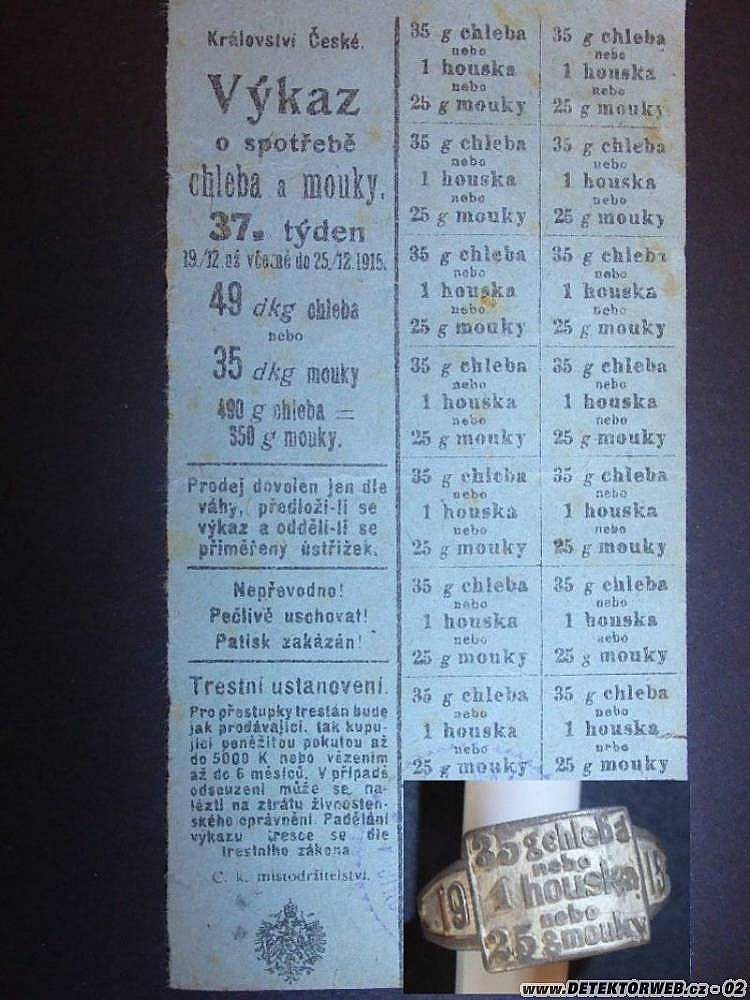 Království České.
Výkaz
o spotřebě
chleba a mouky.
37. týden
19./12. až včetně do 25./12. 1915.
49 dkg chleba
nebo
35 dkg mouky
490 g chleba =
350 g mouky.
Prodej dovolen jen dle
váhy, předloží-li se
výkaz a oddělí-li se
přiměřený ústřižek.
Nepřevodno!
Pečlivě uschovat!
Patisk zakázán!
Trestní ustanovení.
Pro přestupky trestán bude
jak prodávající, tak kupu-
jící peněžitou pokutou až
do 5000 K nebo vězením
až do 6 měsíců. V případě
odsouzení může se na-
lézti na ztrátu živnosteň-
ského oprávnění. Padělání
výkazu tresce se dle
trestního zákona
C. k. místodržitelství.
35 g chleba
nebo
1 houska
nebo
25 g mouky
35 g chleba
nebo
1 houska
nebo
25 g mouky
35 g chleba
nebo
1 houska
nebo
25 g mouky
35 g chleba
nebo
1 houska
nebo
25 g mouky
35 g chleba
nebo
1 houska
nebo
25 g mouky
35 g chleba
nebo
1 houska
nebo
25 g mouky
35 g chleba
nebo
1 houska
nebo
25 g mouky
35 g chleba
nebo
1 houska
nebo
25 g mouky
35 g chleba
nebo
1 houska
nebo
25 g mouky
35 g chleba
nebo
1 houska
nebo
25 g mouky
35 g chleba
nebo
1 houska
nebo
25 g mouky
35 g chleba
nebo
1 houska
nebo
25 g mouky
35 g chleba
nebo
1 houska
nebo
25 g mouky
35 g chleba
nebo
1 houska
nebo
25 g mouky
19
35 g chleba
nebo
1 houska
nebo
25 g mouky
www.DETEKTORWEB.cz - 02